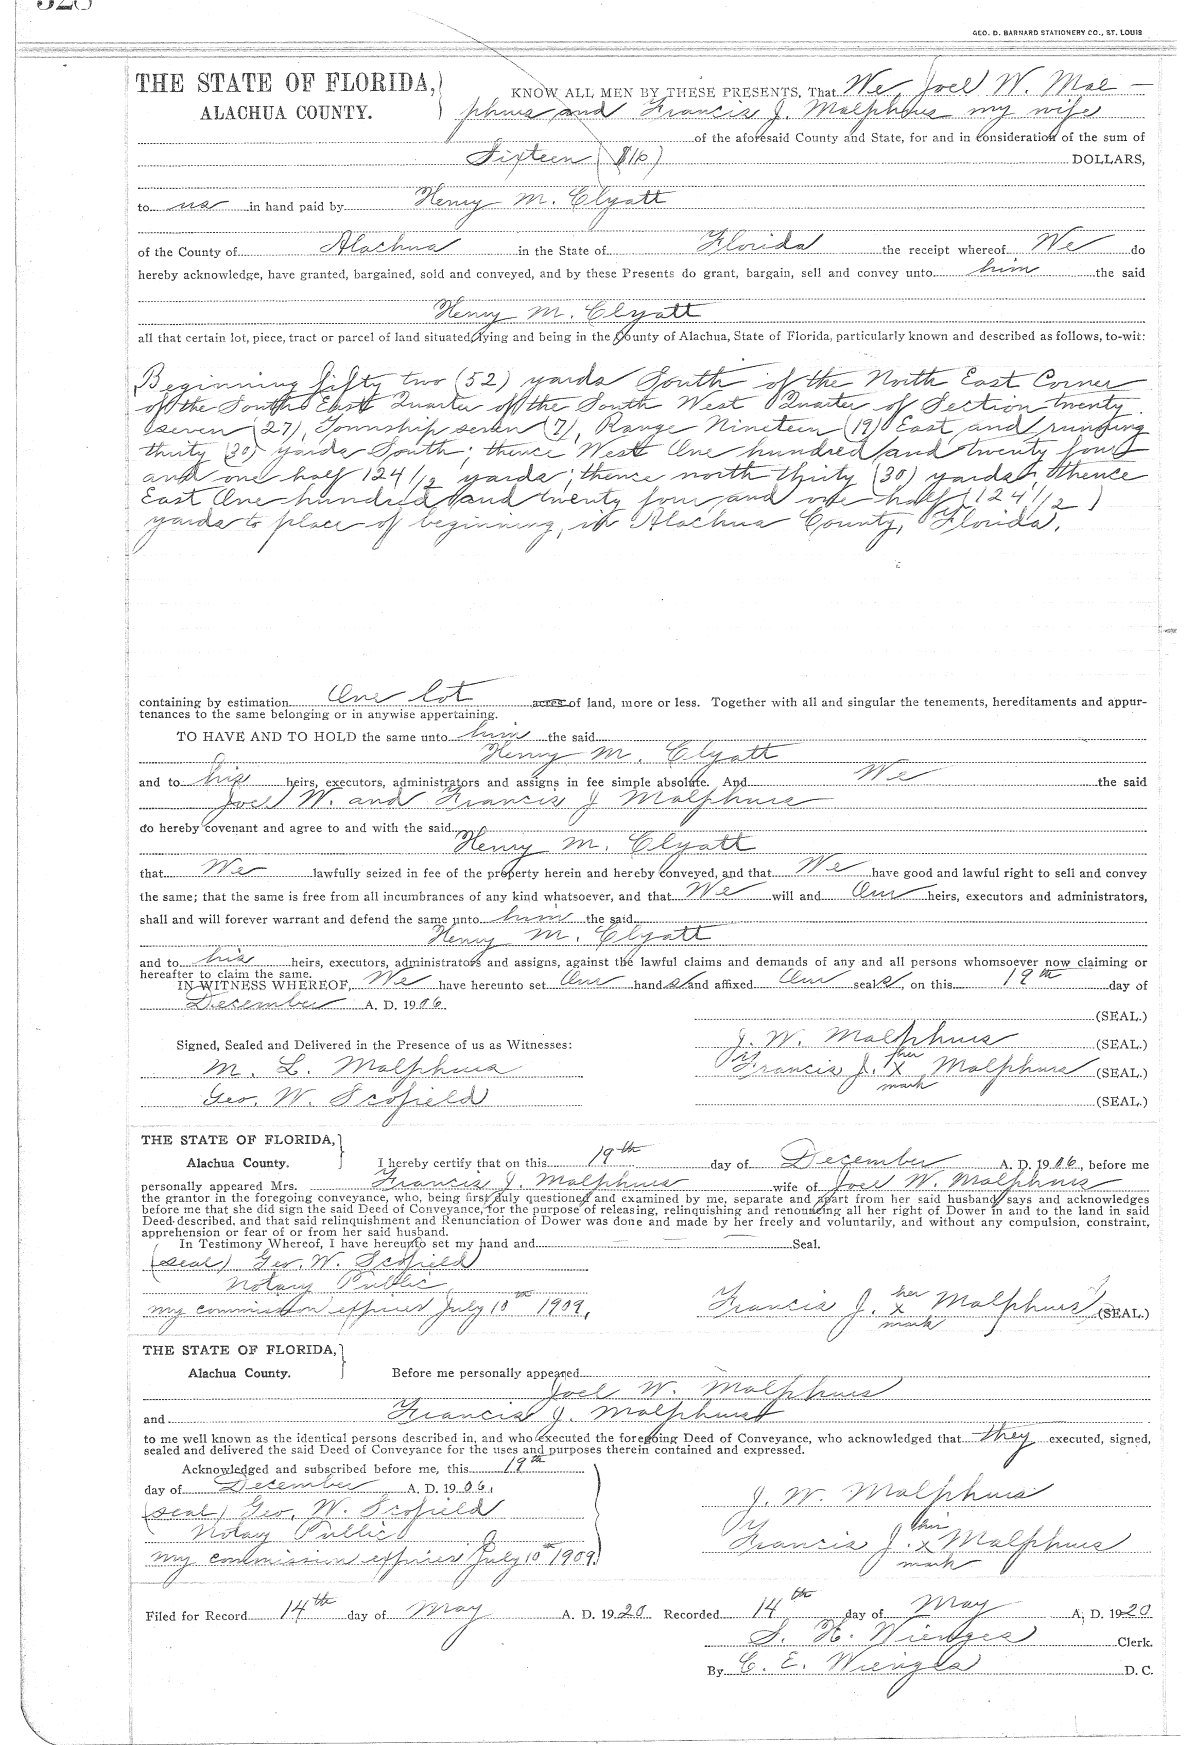 GEO. D. BARNARD STATIONERY CO., ST. LOUIS
THE STATE OF FLORIDA,
ALACHUA COUNTY.
KNOW ALL MEN BY THESE PRESENTS, That We, Joel W. Mal-
phurs and Francis J. Malphurs my wife
of the aforesaid County and State, for and in consideration of the sum of
Sixteen ($16) DOLLARS,
to us in hand paid by Henry M. Clyatt
of the County of Alachua in the State of Florida the receipt whereof We do
hereby acknowledge, have granted, bargained, sold and conveyed, and by these Presents do grant, bargain, sell and convey unto him the said
Henry M. Clyatt
all that certain lot, piece, tract or parcel of land situated, lying and being in the County of Alachua, State of Florida, particularly known and described as follows, to-wit:
Beginning fifty two (52) yards South of the North East Corner
of the South East Quarter of the South West Quarter of Section twenty
seven (27), Township seven (7), Range Nineteen (19) East and running
thirty (30) yards South; thence West One hundred and twenty four
and one half 124 1/2 yards; thence north thirty (30) yards; thence
East One hundred and twenty four and one half (124 1/2)
yards to place of beginning, in Alachua County, Florida.
containing by estimation One lot acres of land, more or less. Together with all and singular the tenements, hereditaments and appur-
tenances to the same belonging or in anywise appertaining.
TO HAVE AND TO HOLD the same unto him the said
Henry M. Clyatt
and to his heirs, executors, administrators and assigns in fee simple absolute. And We the said
Joel W. and Francis J Malphurs
do hereby covenant and agree to and with the said
Henry M. Clyatt
that We lawfully seized in fee of the property herein and hereby conveyed, and that We have good and lawful right to sell and convey
the same; that the same is free from all incumbrances of any kind whatsoever, and that We will and Our heirs, executors and administrators,
shall and will forever warrant and defend the same unto him the said
Henry M. Clyatt
and to his heirs, executors, administrators and assigns, against the lawful claims and demands of any and all persons whomsoever now claiming or
hereafter to claim the same.
IN WITNESS WHEREOF, We have hereunto set Our hand s and affixed Our seal s, on this 19th day of
December A. D. 1906
(SEAL.)
Signed, Sealed and Delivered in the Presence of us as Witnesses:
J. W. Malphurs (SEAL.)
M. L. Malphurs
Francis J. her x mark Malphurs (SEAL.)
Geo. W. Scofield
(SEAL.)
THE STATE OF FLORIDA,
Alachua County.
I hereby certify that on this 19th day of December A. D. 1906, before me
personally appeared Mrs. Francis J. Malphurs wife of Joel W. Malphurs
the grantor in the foregoing conveyance, who, being first duly questioned and examined by me, separate and apart from her said husband, says and acknowledges
before me that she did sign the said Deed of Conveyance, for the purpose of releasing, relinquishing and renouncing all her right of Dower in and to the land in said
Deed described, and that said relinquishment and Renunciation of Dower was done and made by her freely and voluntarily, and without any compulsion, constraint,
apprehension or fear of or from her said husband.
In Testimony Whereof, I have hereunto set my hand and Seal.
(seal) Geo. W. Scofield
Notary Public
my commission expires July 10th 1909.
Francis J. her x mark Malphurs (SEAL.)
THE STATE OF FLORIDA,
Alachua County.
Before me personally appeared
Joel W. Malphurs
and Francis J. Malphurs
to me well known as the identical persons described in, and who executed the foregoing Deed of Conveyance, who acknowledged that they executed, signed,
sealed and delivered the said Deed of Conveyance for the uses and purposes therein contained and expressed.
Acknowledged and subscribed before me, this 19th
day of December A. D. 1906.
(seal) Geo. W. Scofield
Notary Public
my commission expires July 10th 1909
J. W. Malphurs
Francis J. her x mark Malphurs
Filed for Record 14th day of May A. D. 1920 Recorded 14th day of May A. D. 1920
S. H. Wienges Clerk.
By C. E. Wienges D. C.